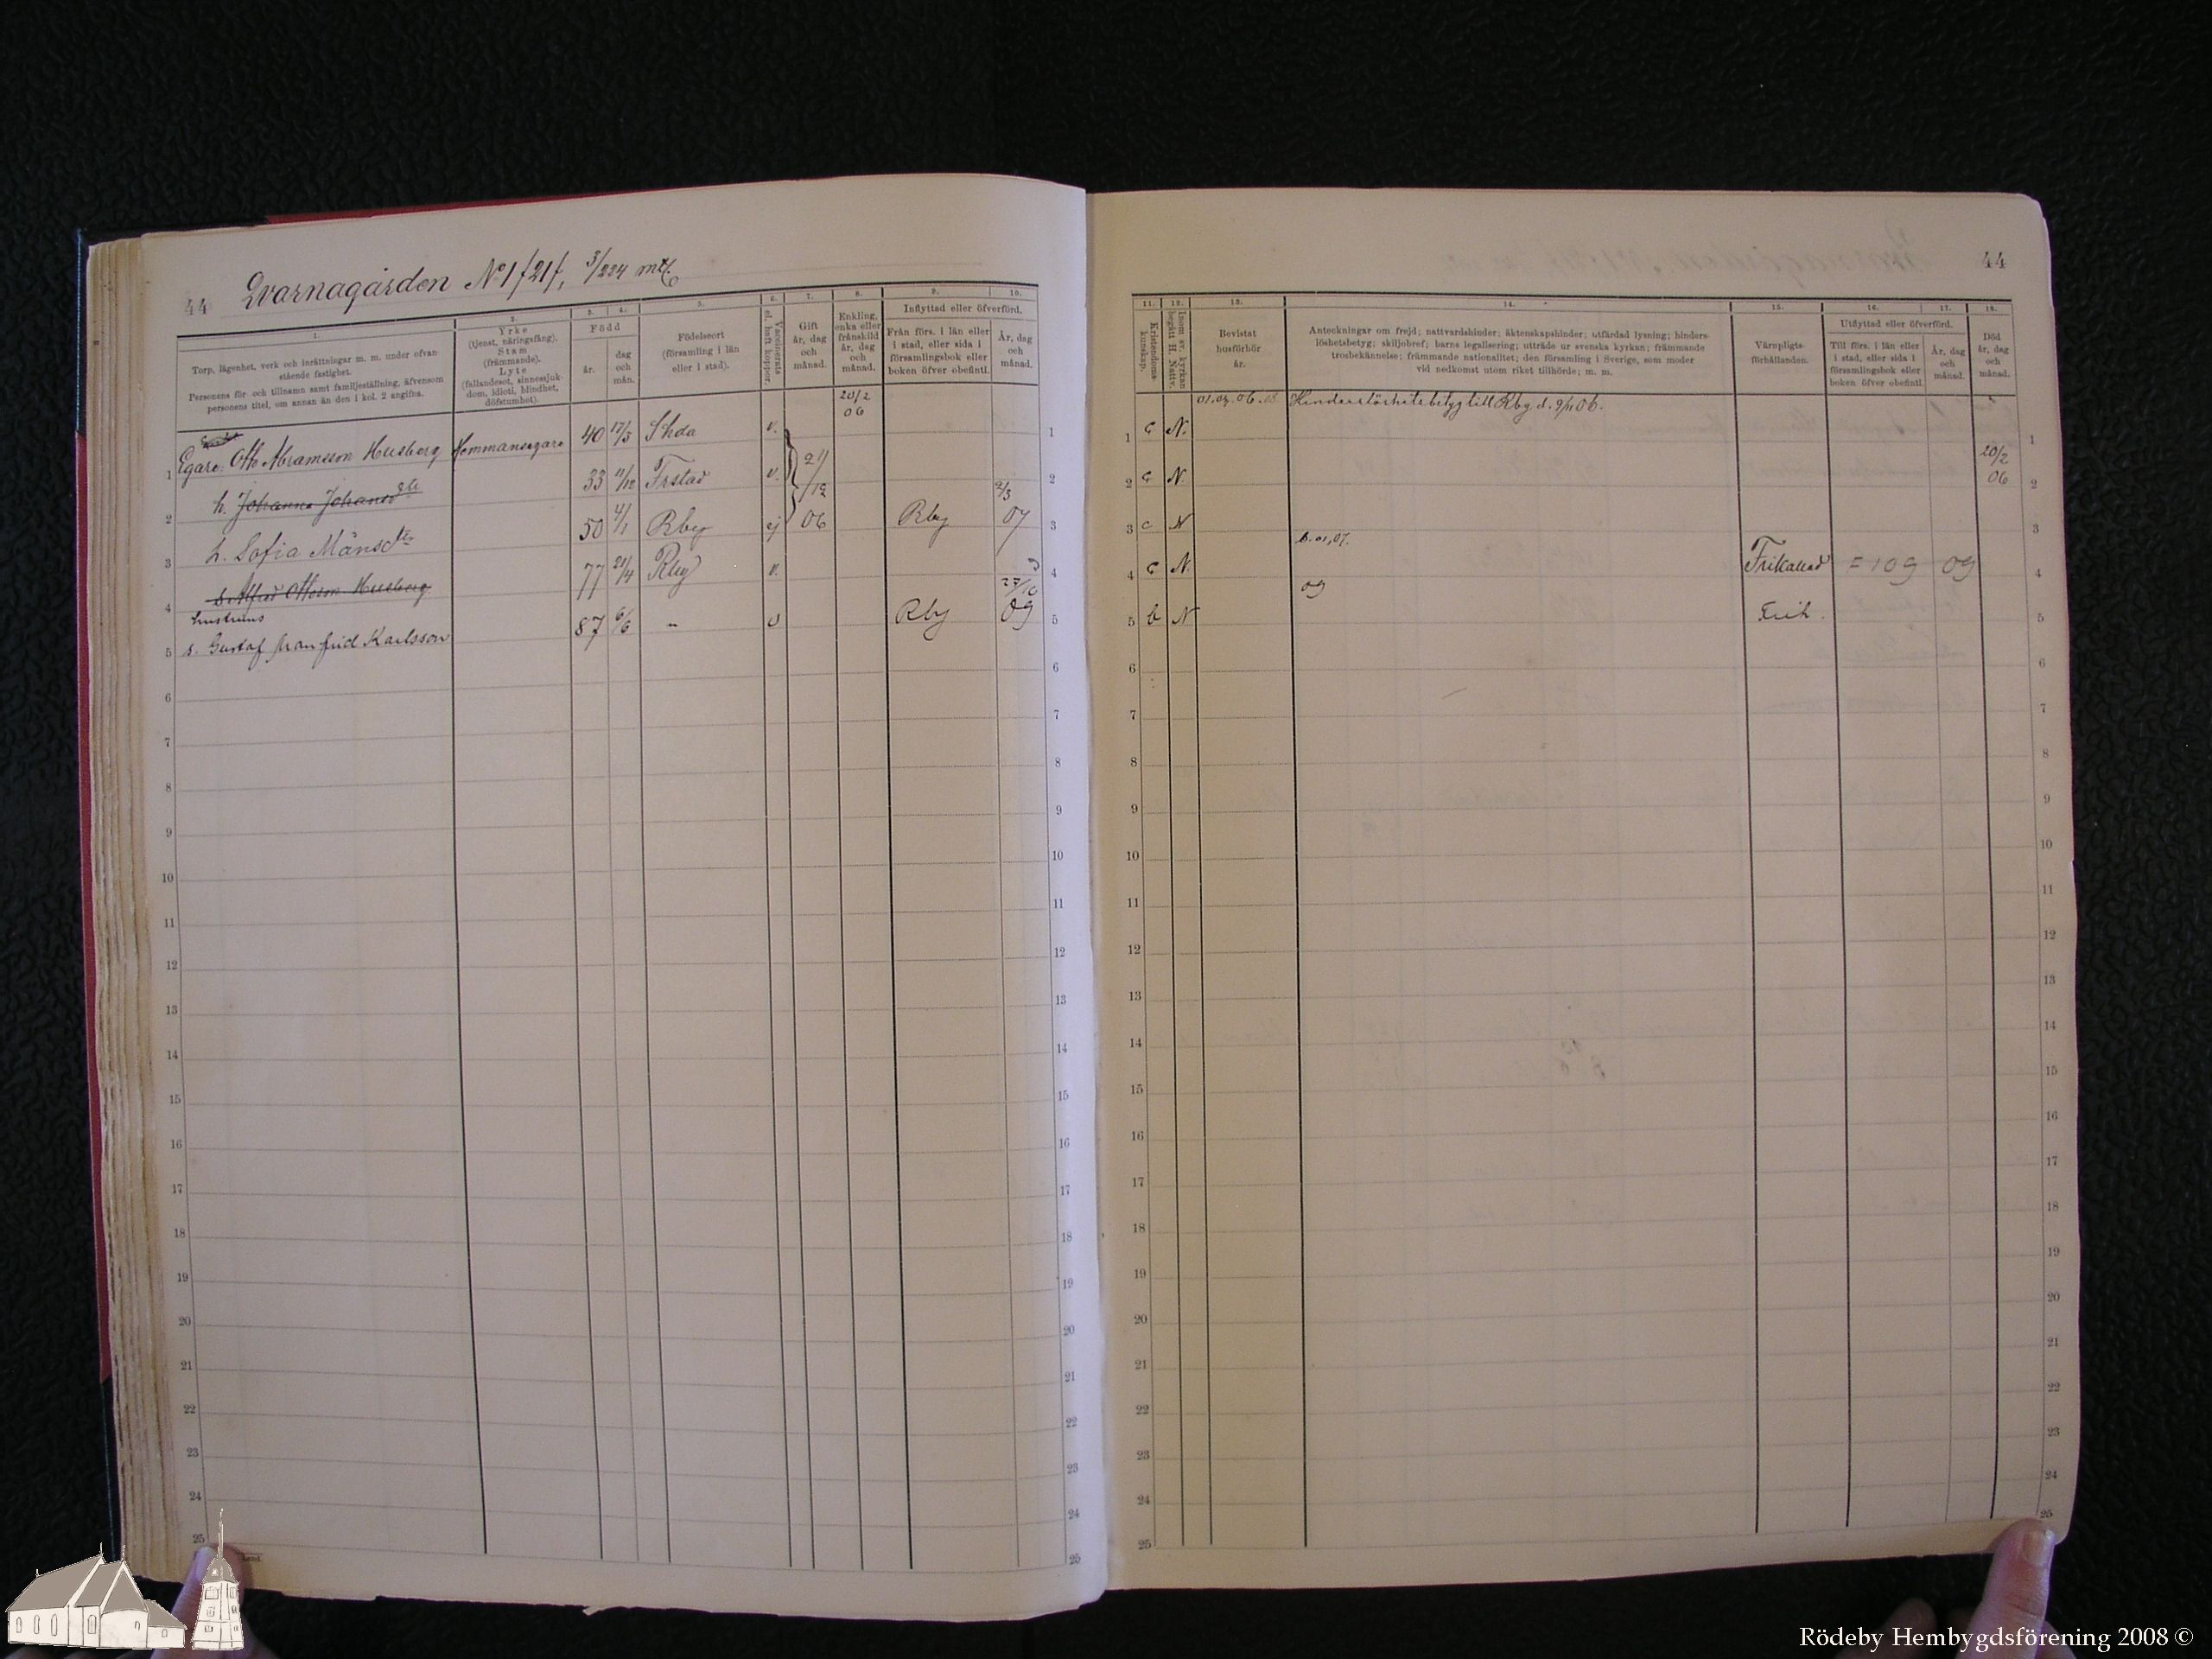 44 Qvarnagården No 1 /21/, 3/224 mtl
1. 2. 3. 4. 5. 6. 7. 8. 9. 10.
Torp, lägenhet, verk och inrättningar m. m. under ofvanstående fastighet.
Personens för- och tillnamn samt familjeställning, äfvensom personens titel, om annan än den i kol. 2 angifna.
Yrke (tjenst, näringsfång). Stam (främmande). Lyte (fallandesot, sinnessjukdom, idioti, blindhet, döfstumhet).
Född
år.
dag och mån.
Födelseort (församling i län eller i stad).
Vaccinerats el. haft koppor.
Gift år, dag och månad.
Enkling, enka eller frånskild år, dag och månad.
Inflyttad eller öfverförd.
Från förs. i län eller i stad, eller sida i församlingsbok eller boken öfver obefintl.
År, dag och månad.
1 Egare Otto Abramsson Husberg Hemmansegare 40 17/5 v. 20/2 06 1
2 h. Johanna Johansdtr 33 11/12 Frstad v. 21/12 06 2
3 h. Sofia Månsdtr 50 4/1 Rby ej Rby 2/3 07 3
4 s. Alfred Ottoson Husberg 77 21/4 Rby v. 4
hustruns
5 s. Gustaf Manfrid Karlsson 87 6/6 " v Rby 27/10 09 5
6 6
7 7
8 8
9 9
10 10
11 11
12 12
13 13
14 14
15 15
16 16
17 17
18 18
19 19
20 20
21 21
22 22
23 23
24 24
25 25
Lund
44
11. 12. 13. 14. 15. 16. 17. 18.
Kristendomskunskap.
Inom sv. kyrkan begått H. Nattv.
Bevistat husförhör år.
Anteckningar om frejd; nattvardshinder; äktenskapshinder; utfärdad lysning; hinderslöshetsbetyg; skiljobref; barns legalisering; utträde ur svenska kyrkan; främmande trosbekännelse; främmande nationalitet; den församling i Sverige, som moder vid nedkomst utom riket tillhörde; m. m.
Värnpligtsförhållanden.
Utflyttad eller öfverförd.
Till förs. i län eller i stad, eller sida i församlingsbok eller boken öfver obefintl.
År, dag och månad.
Död år, dag och månad.
1 c N. 01.03.06. Hinderslöshetsbetyg till Rby d. 9/11 06. 1
2 c N. 20/2 06 2
3 c N 3
4 c N. 01,07. Frikallad = 109 09 4
5 b N 09 5
6 6
7 7
8 8
9 9
10 10
11 11
12 12
13 13
14 14
15 15
16 16
17 17
18 18
19 19
20 20
21 21
22 22
23 23
24 24
25 25
Rödeby Hembygdsförening 2008 ©